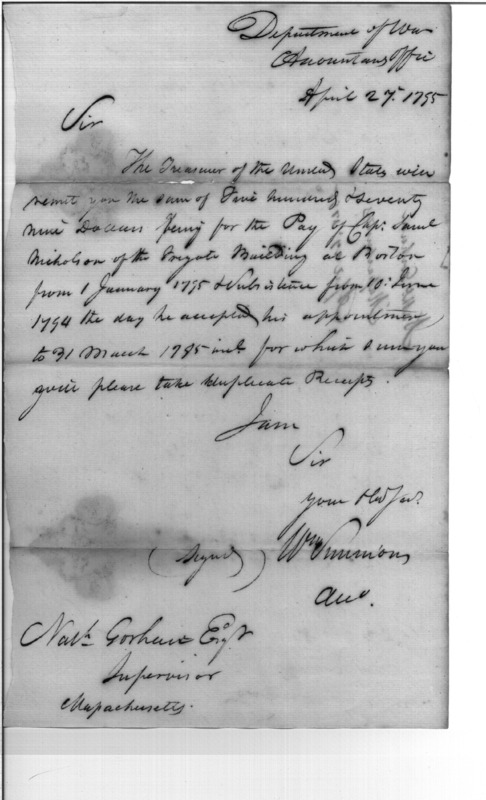 Department of War
Accountants Office
April 27th 1795
Sir
The Treasurer of the United States will
remit you the sum of Five hundred & seventy
nine Dollars being for the Pay of Capt. Saml
Nicholson of the Frigate Building at Boston
from 1 January 1795 & Subsistence from 10th June
1794 the day he accepted his appointment
to 31 March 1795 inclt. for which sum you
will please take duplicate Receipts.
I am
Sir
your Obd Servt.
(signed) Wm Simmons
Acct.
Nathl. Gorham Esqr
Supervisor
Massachusetts.